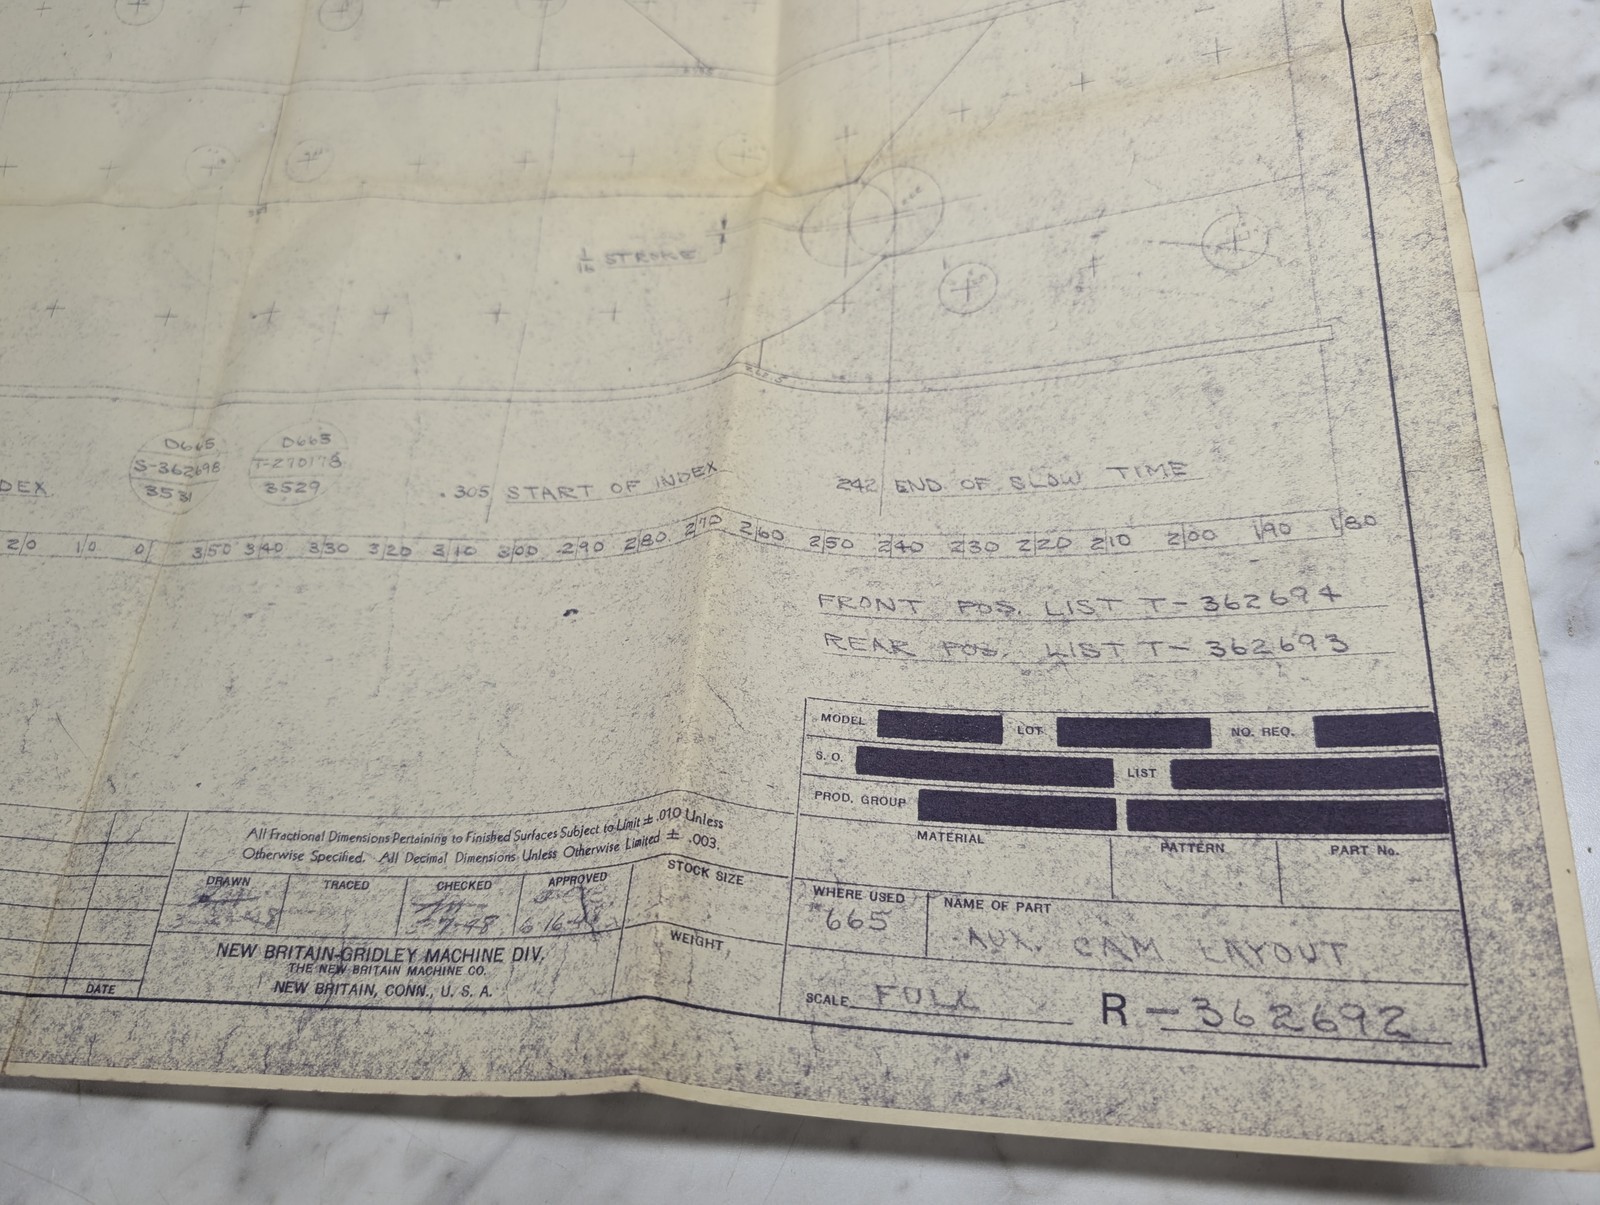 1/16 STROKE
D665
S-362698
3531
D665
T-270178
3529
DEX
305 START OF INDEX
242 END OF SLOW TIME
20 10 0 350 340 330 320 310 300 290 280 270 260 250 240 230 220 210 200 190 180
FRONT POS. LIST T-362694
REAR POS. LIST T-362693
MODEL LOT NO. REQ.
S. O. LIST
PROD. GROUP
MATERIAL PATTERN PART No.
All Fractional Dimensions Pertaining to Finished Surfaces Subject to Limit ± .010 Unless
Otherwise Specified. All Decimal Dimensions Unless Otherwise Limited ± .003.
DRAWN TRACED CHECKED APPROVED STOCK SIZE
WHERE USED NAME OF PART
665 AUX. CAM LAYOUT
NEW BRITAIN-GRIDLEY MACHINE DIV.
THE NEW BRITAIN MACHINE CO.
NEW BRITAIN, CONN., U. S. A.
WEIGHT
DATE
SCALE FULL R-362692